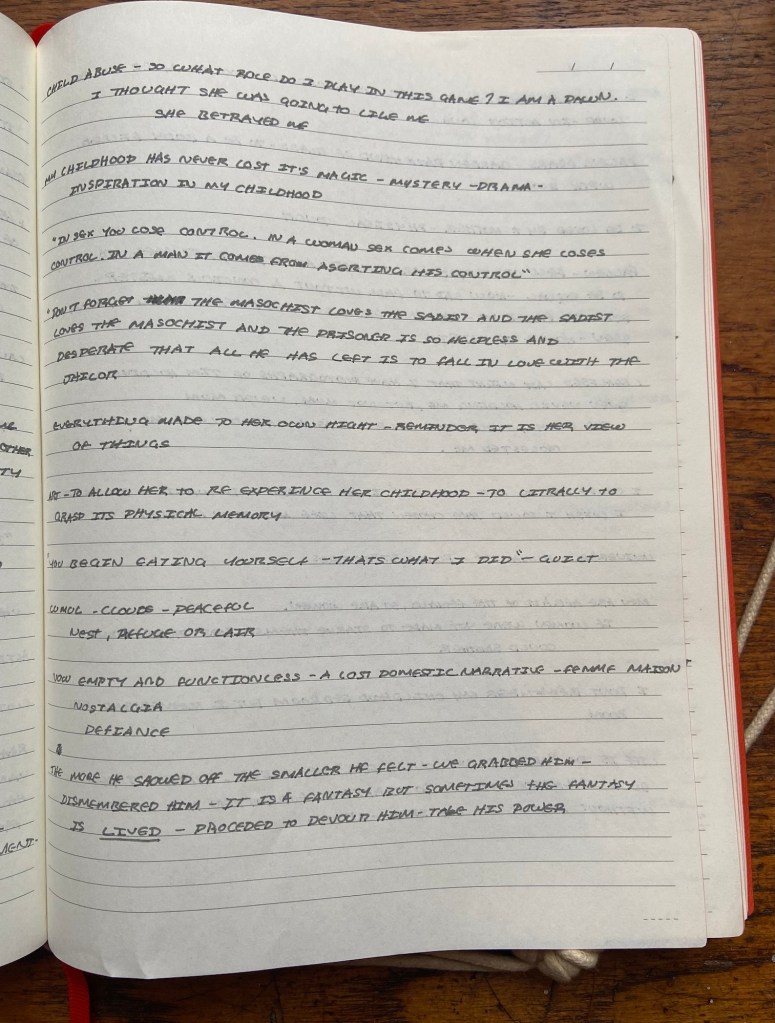 CHILD ABUSE – SO WHAT ROLE DO I PLAY IN THIS GAME? I AM A PAWN.
I THOUGHT SHE WAS GOING TO LIKE ME
SHE BETRAYED ME
MY CHILDHOOD HAS NEVER LOST IT'S MAGIC – MYSTERY – DRAMA –
INSPIRATION IN MY CHILDHOOD
"IN SEX YOU LOSE CONTROL. IN A WOMAN SEX COMES WHEN SHE LOSES
CONTROL. IN A MAN IT COMES FROM ASERTING HIS CONTROL"
"DON'T FORGET THE MASOCHIST LOVES THE SADIST AND THE SADIST
LOVES THE MASOCHIST AND THE PRISONER IS SO HELPLESS AND
DESPERATE THAT ALL HE HAS LEFT IS TO FALL IN LOVE WITH THE
JAILOR
EVERYTHING MADE TO HER OWN HIGHT – REMINDER IT IS HER VIEW
OF THINGS
ART – TO ALLOW HER TO RE EXPERINCE HER CHILDHOOD – TO LITRALLY TO
GRASP ITS PHYSICAL MEMORY
"YOU BEGIN EATING YOURSELF – THATS WHAT I DID" – GUILT
CUMUL – CLOUDS – PEACEFUL
NEST, REFUGE OR LAIR
NOW EMPTY AND FUNCTIONLESS – A LOST DOMESTIC NARRATIVE – FEMME MAISON"
NOSTALGIA
DEFIANCE
THE MORE HE SHOWED OFF THE SMALLER HE FELT – WE GRABBED HIM –
DISMEMBERED HIM – IT IS A FANTASY BUT SOMETIMES THE FANTASY
IS LIVED – PROCEDED TO DEVOUR HIM – TAKE HIS POWER
OTHER
TY